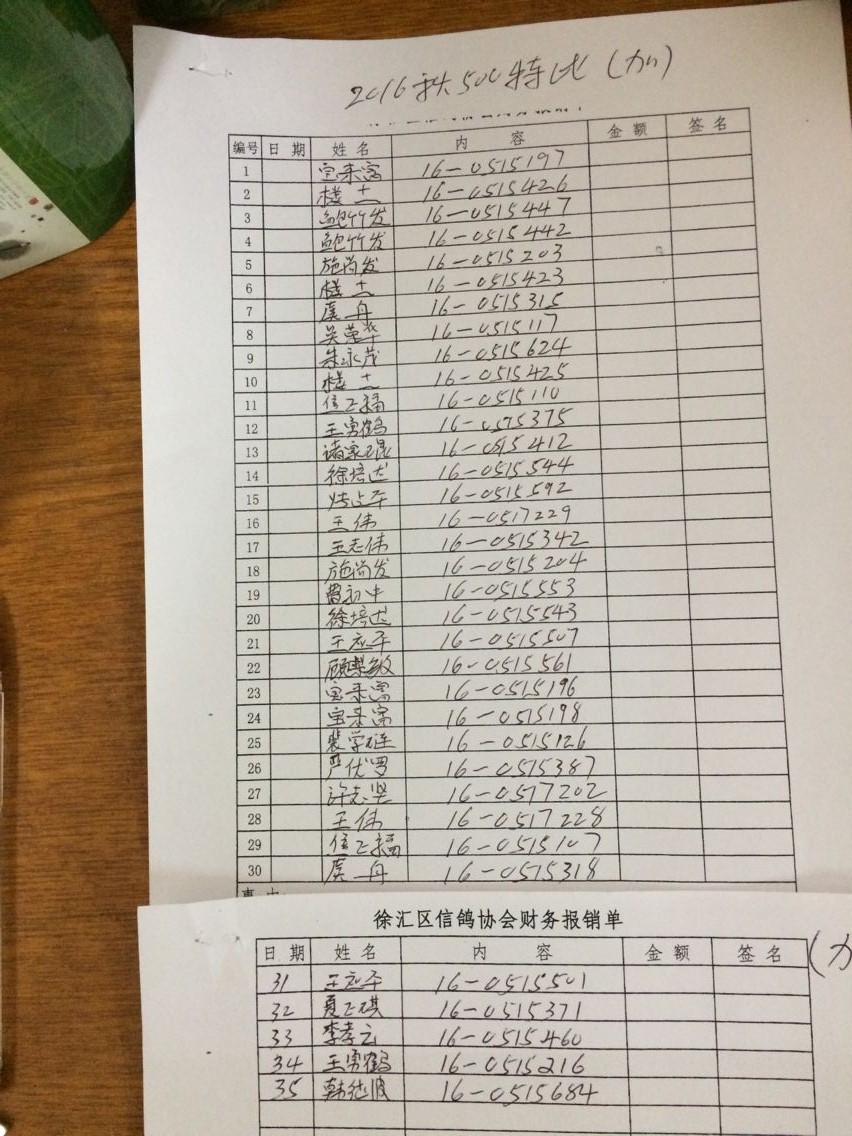 2016秋500特比(加)
编号 日期 姓名 内容 金额 签名
1 宝来富 16-0515197
2 楼士 16-0515426
3 鲍竹发 16-0515447
4 鲍竹发 16-0515442
5 施尚发 16-0515203
6 楼士 16-0515423
7 虞舟 16-0515315
8 吴荣华 16-0515117
9 朱永茂 16-0515624
10 楼士 16-0515425
11 福 16-0515110
12 王勇鹤 16-0515375
13 诸家琨 16-0515412
14 徐培达 16-0515544
15 16-0515592
16 王伟 16-0517229
17 王志伟 16-0515342
18 施尚发 16-0515204
19 曹初中 16-0515553
20 徐培达 16-0515543
21 王应平 16-0515507
22 顾 敏 16-0515561
23 宝来富 16-0515196
24 宝来富 16-0515198
25 裴学 16-0515126
26 严伏罗 16-0515387
27 许志坚 16-0517202
28 王伟 16-0517228
29 福 16-0515107
30 虞舟 16-0515318
徐汇区信鸽协会财务报销单
日期 姓名 内容 金额 签名
31 王应平 16-0515501
32 夏正琪 16-0515371
33 李孝云 16-0515460
34 王勇鹤 16-0515216
35 韩 波 16-0515684